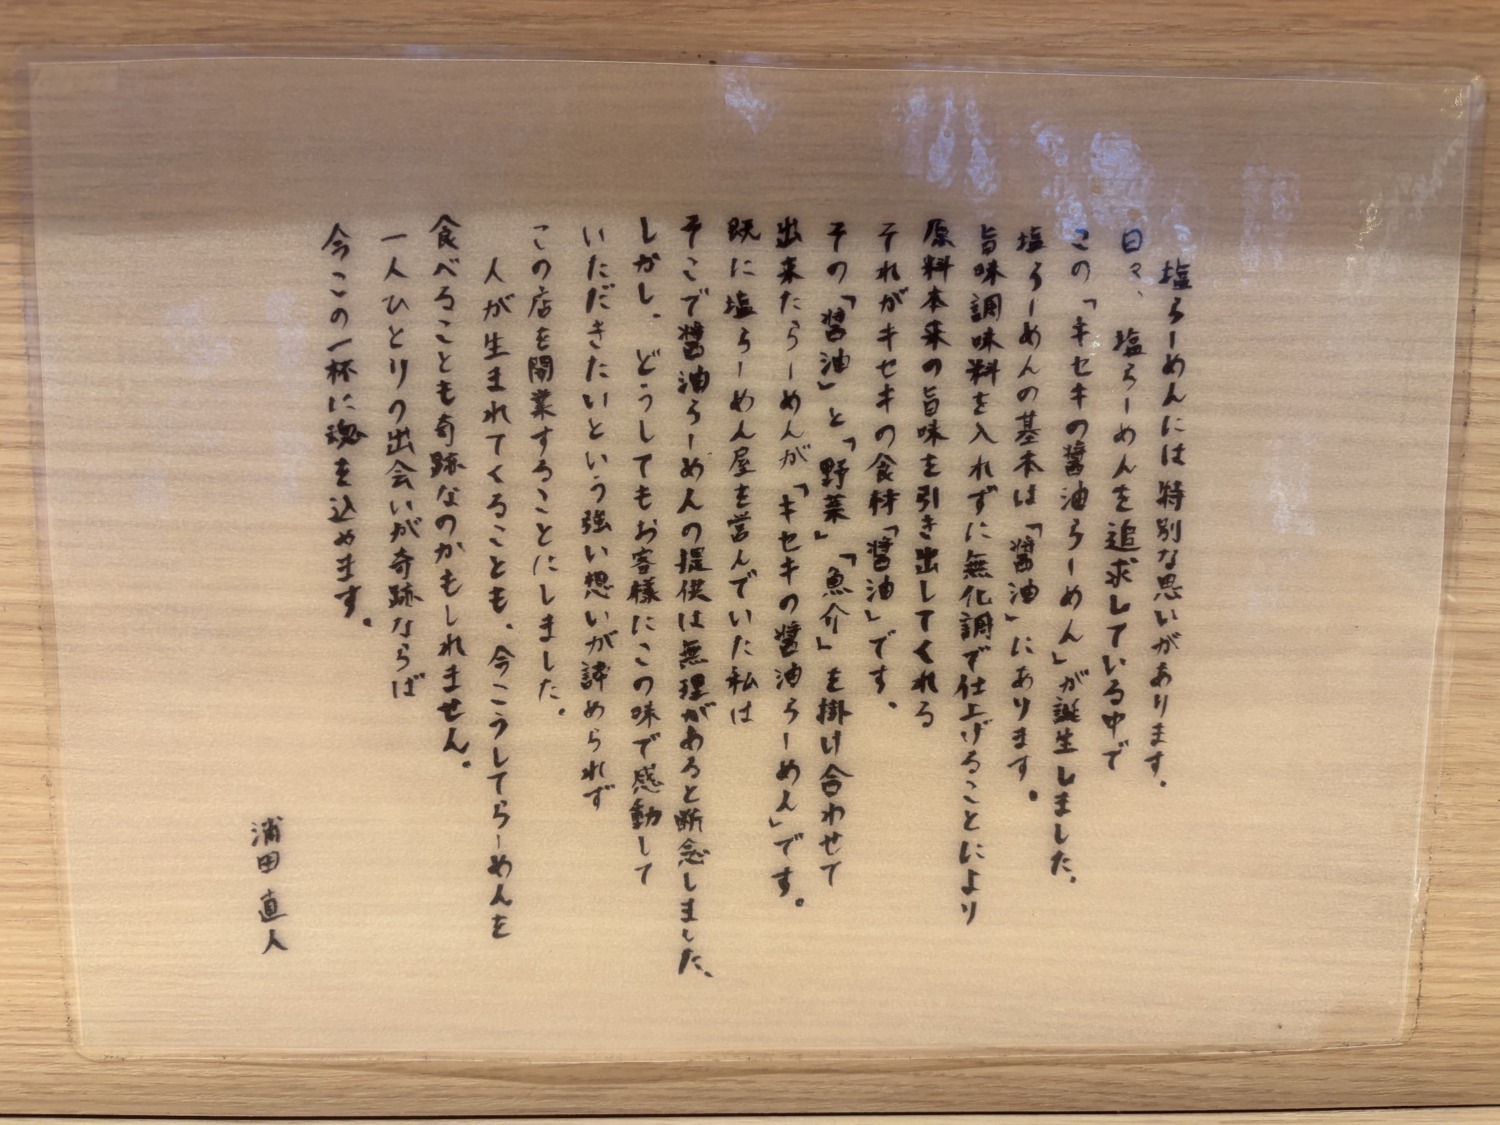 塩らーめんには特別な思いがあります。
日々、塩らーめんを追求している中で
この「キセキの醤油らーめん」が誕生しました。
塩らーめんの基本は「醤油」にあります。
旨味調味料を入れずに無化調で仕上げることにより
原料本来の旨味を引き出してくれる
それがキセキの食材「醤油」です。
その「醤油」と「野菜」「魚介」を掛け合わせて
出来たらーめんが「キセキの醤油らーめん」です。
既に塩らーめん屋を営んでいた私は
そこで醤油らーめんの提供は無理があると断念しました、
しかし、どうしてもお客様にこの味で感動して
いただきたいという強い想いが諦められず
この店を開業することにしました。
人が生まれてくることも、今こうしてらーめんを
食べることも奇跡なのかもしれません。
一人ひとりの出会いが奇跡ならば
今この一杯に魂を込めます。
浦田 直人